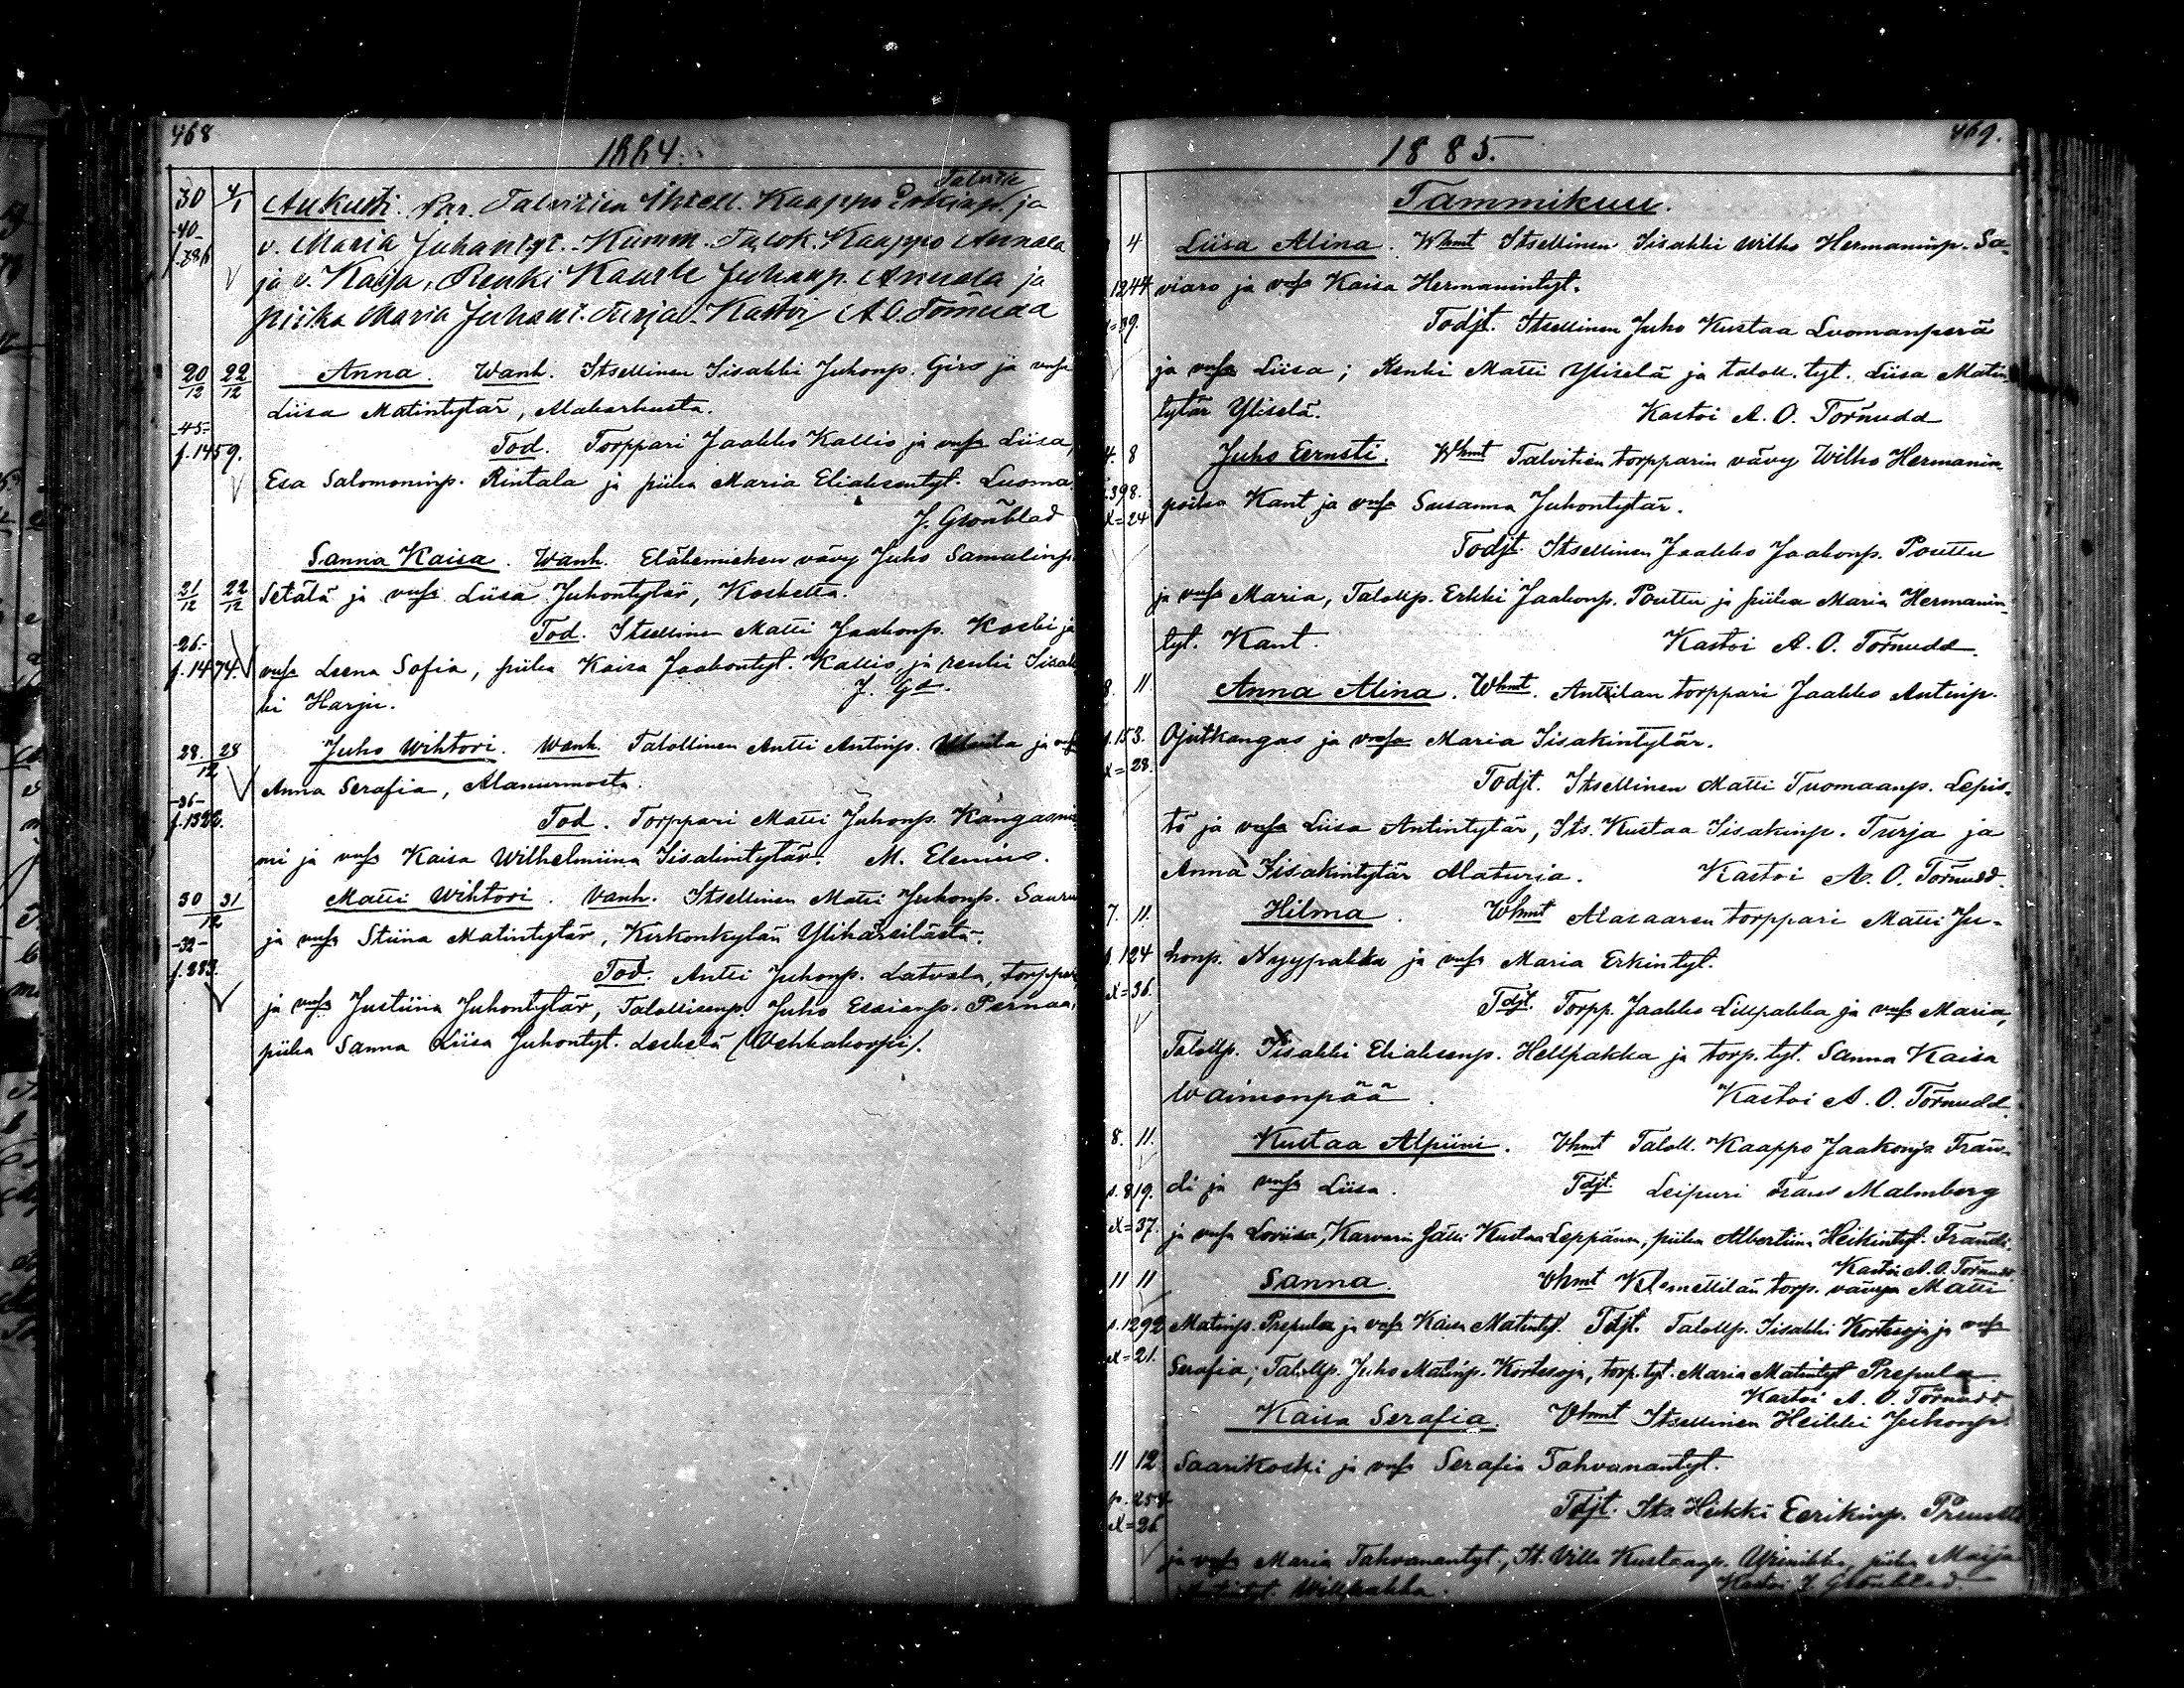 468
1884.
Talvitie
30 4/1 Aukusti. Par. Talvitien Itsell. Kaappo ja
-40- v. Maria Juhantyt. Kumm. Talok. Kaappo Annala
ja v. Kaisa, Renki Kaarle Juhanp. Annala ja
piika Maria Juhant. Turja. Kastoi A.O. Törnudd
20/12 22/12 Anna. Wanh. Itsellinen Iisakki Juhonp. Girs ja vmsa
Liisa Matintytär, Alakarhusta.
-45-
f. 1459. Tod. Torppari Jaakko Kallio ja vmsa Liisa,
Esa Salomoninp. Rintala ja piika Maria Eliaksentyt. Luoma.
J. Grönblad
Sanna Kaisa. Wanh. Elätemiehen vävy Juho Samulinp.
21/12 22/12 Setälä ja vmsa Liisa Juhontytär, Koskelta.
-26- Tod. Itsellinen Matti Jaakonp. Koski ja
f. 1474. vmsa Leena Sofia, piika Kaisa Jaakontyt. Kallio, ja renki Iisak
ki Harju. J. Gd.
28. 28/12 Juho Wihtori. Wanh. Talollinen Antti Antinp. ja vmsa
Anna Serafia, Alanurmosta.
-36-
f. 1322. Tod. Torppari Matti Juhonp. Kangasnie
mi ja vmsa Kaisa Wilhelmiina Iisakintytär. M. Elenius.
30 31/12 Matti Wihtori. Vanh. Itsellinen Matti Juhonp. Sauru
-32- ja vmsa Stiina Matintytär, Kirkonkylän Ylihärsilästä.
f. 283. Tod. Antti Juhonp. Latvala, torppari
ja vmsa Justiina Juhontytär, Talollisenp. Juho Esaianp. Pernaa,
piika Sanna Liisa Juhontyt. Leskelä (Vehkakorpi).
469.
1885.
Tammikuu.
4 Liisa Alina. Whmt Itsellinen Iisakki Wilho Hermaninp. Sa-
1244 viaro ja vmsa Kaisa Hermanintyt.
x=39. Todjt. Itsellinen Juho Kustaa Luomanperä
ja vmsa Liisa; Renki Matti Yliselä ja taloll. tyt. Liisa Matin
tytär Yliselä. Kastoi A. O. Törnudd
4. 8 Juho Eernsti. Whmt Talvitien torpparin vävy Wilho Hermanin-
398. poika Kant ja vmsa Susanna Juhontytär.
x=24
Todjt. Itsellinen Jaakko Jaakonp. Pouttu
ja vmsa Maria, Talollp. Erkki Jaakonp. Pouttu ja piika Maria Hermanin-
tyt. Kant. Kastoi A. O. Törnudd.
8. 11. Anna Alina. Whmt. Anttilan torppari Jaakko Antinp.
p. 153. Ojutkangas ja vmsa Maria Iisakintytär.
x=28. Todjt. Itsellinen Matti Tuomaanp. Lepis-
tö ja vmsa Liisa Antintytär, Its. Kustaa Iisakinp. Turja ja
Anna Iisakintytär Alaturia. Kastoi A. O. Törnudd.
7. 11. Hilma. Whmt Alasaaren torppari Matti Ju-
p. 124 honp. Nyypakka ja vmsa Maria Erkintyt.
x=36. Tdjt. Torpp. Jaakko Lillpakka ja vmsa Maria,
Talollp. Iisakki Eliaksenp. Hellpakka ja torp. tyt. Sanna Kaisa
Waimonpää. Kastoi A. O. Törnudd.
8. 11. Kustaa Alpiini. Vhmt Taloll. Kaappo Jaakonp. Fran-
p. 819. di ja vmsa Liisa. Tdjt. Leipuri Frans Malmberg
x=37. ja vmsa Loviisa, Karvarin sälli Kustaa Leppänen, piika Albertiina Heikintyt. Frandi.
Kastoi A. O. Törnudd.
11 11 Sanna. Vhmt Klemettilän torp. vävyn Matti
p. 1292 Matinp. Prepula ja vmsa Kaisa Matintyt. Tdjt. Talollp. Iisakki Kortesoja ja vmsa
x=21. Serafia; Talollp. Juho Matinp. Kortesoja, torp. tyt. Maria Matintyt Prepula.
Kastoi A. O. Törnudd
Kaisa Serafia. Vhmt Itsellinen Heikki Juhonp.
11 12 Saarikoski ja vmsa Serafia Tahvanantyt.
p. 254
x=26 Tdjt. Its. Heikki Eerikinp.
ja vmsa Maria Tahvanantyt., It. Ville Kustaanp. piika Maija
Willpakka. Kastoi J. Grönblad.